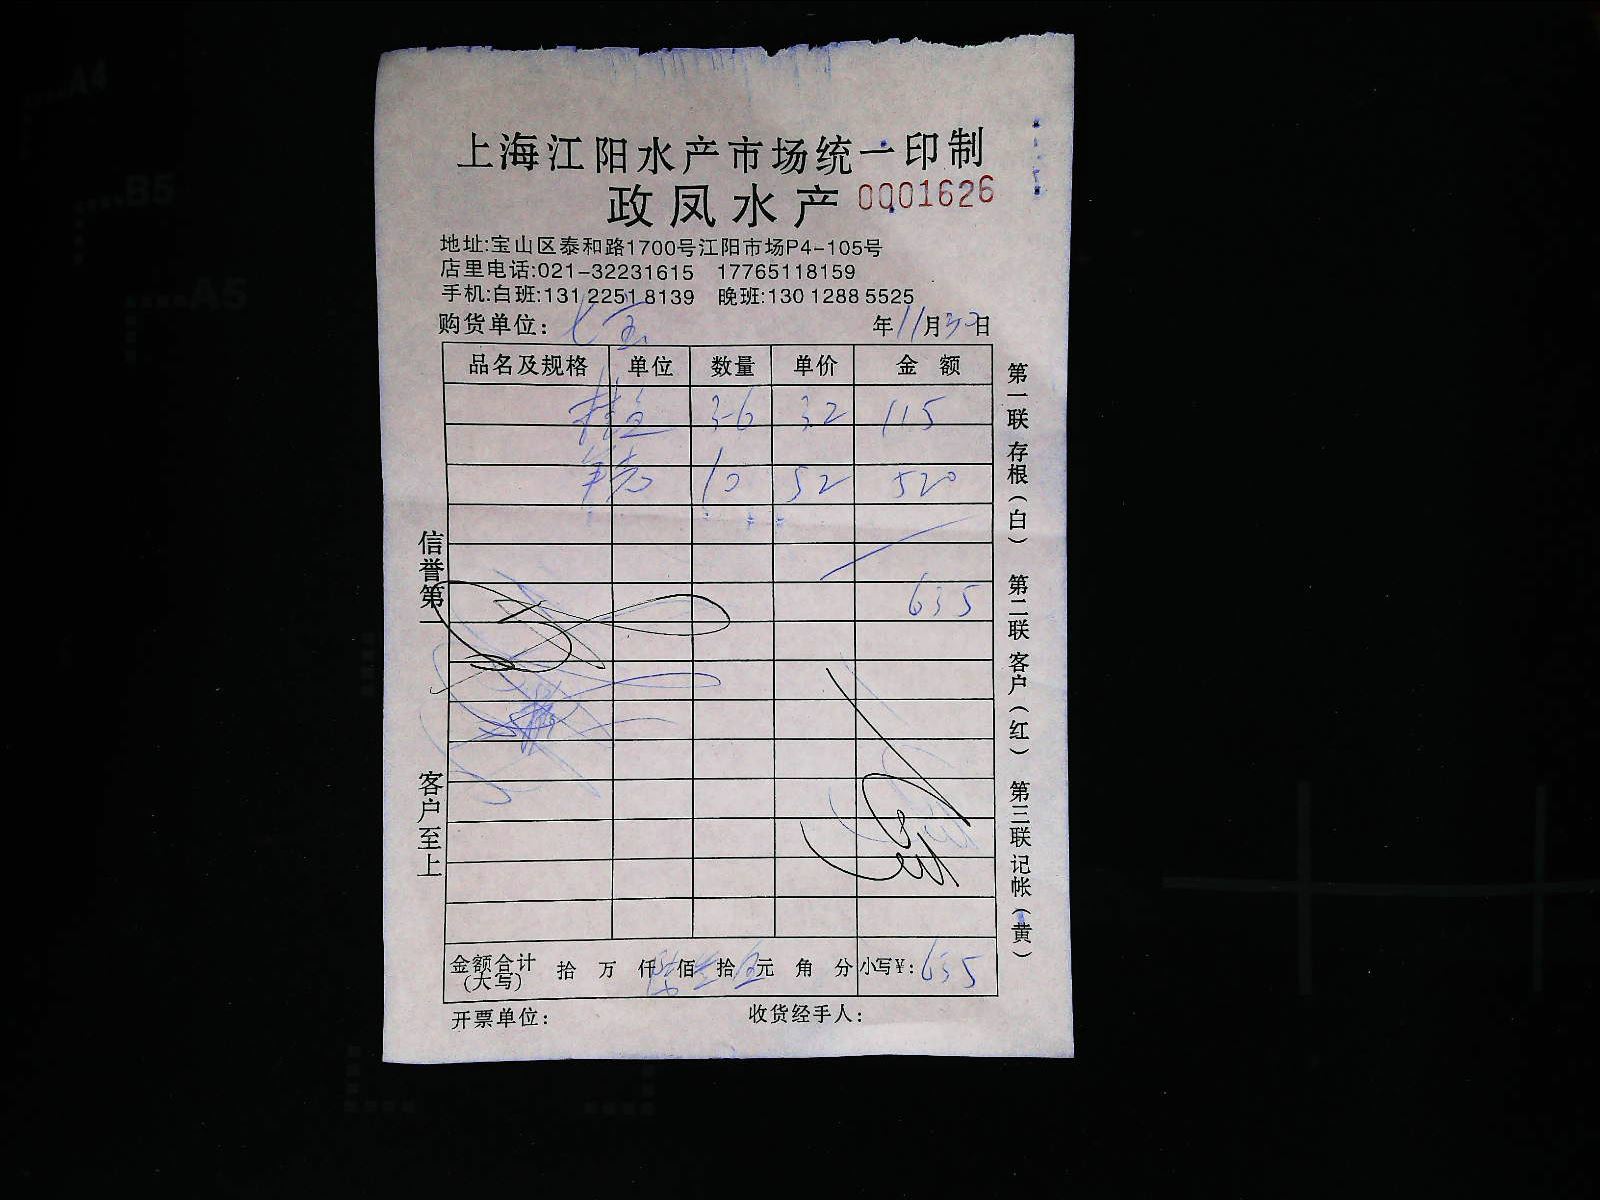 上海江阳水产市场统一印制
政凤水产 0001626
地址:宝山区泰和路1700号江阳市场P4-105号
店里电话:021-32231615 17765118159
手机:白班:131 2251 8139 晚班:130 1288 5525
购货单位: 七宝 年11月30日
品名及规格 单位 数量 单价 金额
桂鱼 3.6 32 115
10 52 520
635
金额合计(大写) 拾 万 仟 陆佰 叁拾 伍元 角 分 小写¥: 635
开票单位: 收货经手人:
信誉第一 客户至上
第一联 存根(白) 第二联 客户(红) 第三联 记帐(黄)
A4
B5
A5